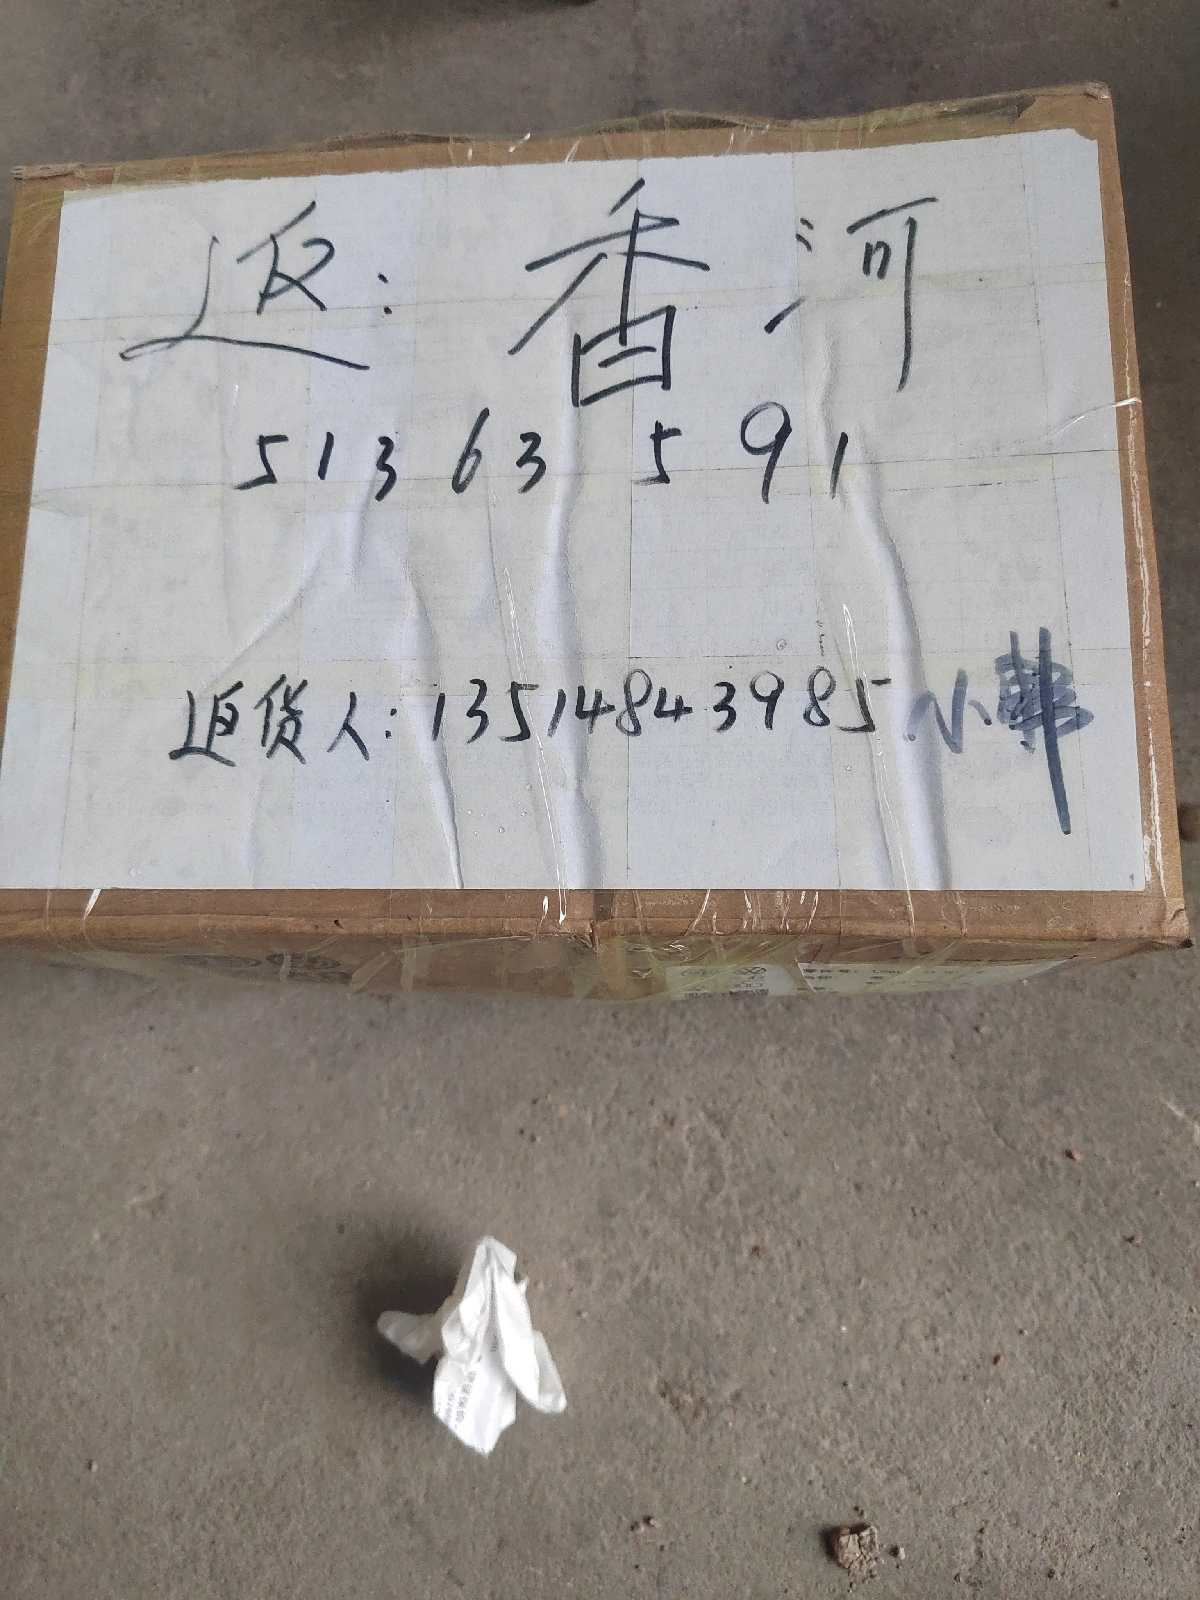 返：香河
51363591
返货人：13514843985 小韩